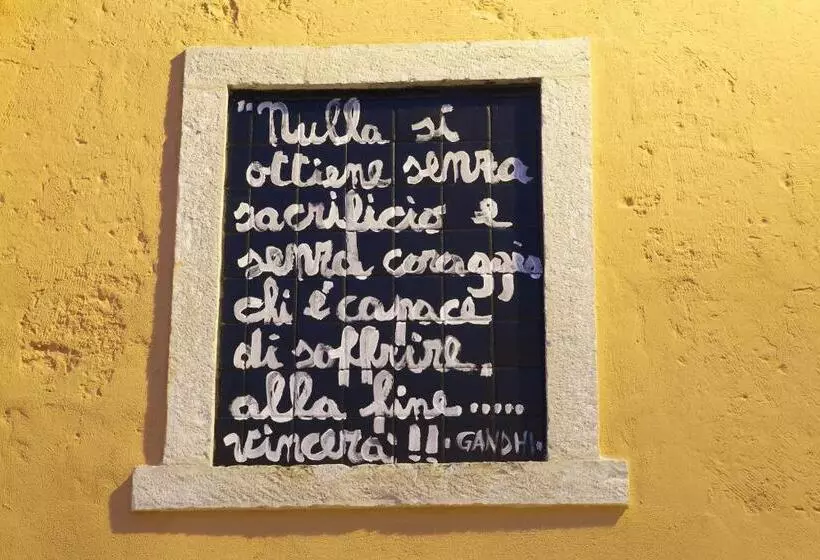 "Nulla si
ottiene senza
sacrificio e
senza coraggio
chi é capace
di soffrire.
alla fine .....
vincerà !! · GANDHI.